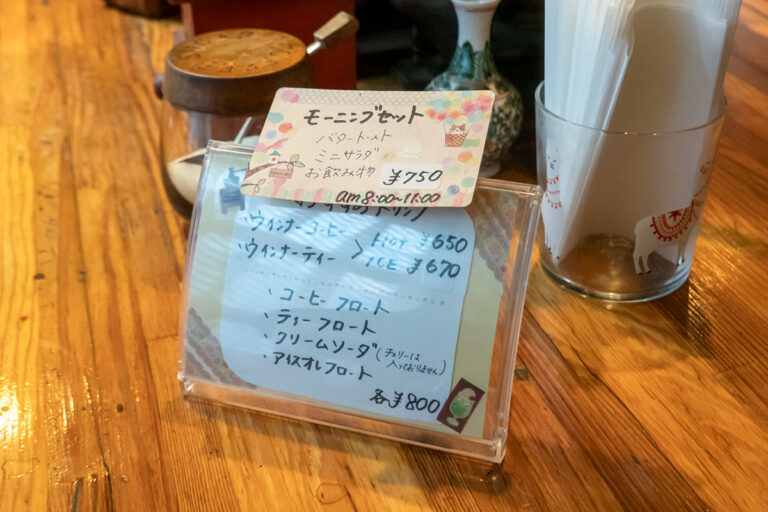 モーニングセット
バタートースト
ミニサラダ
お飲み物 ¥750
am8:00~11:00
ウインナーコーヒー HOT ¥650
ウインナーティー > ICE ¥670
、コーヒーフロート
、ティーフロート
、クリームソーダ(チェリーは入っておりません)
、アイスオレフロート
各¥800